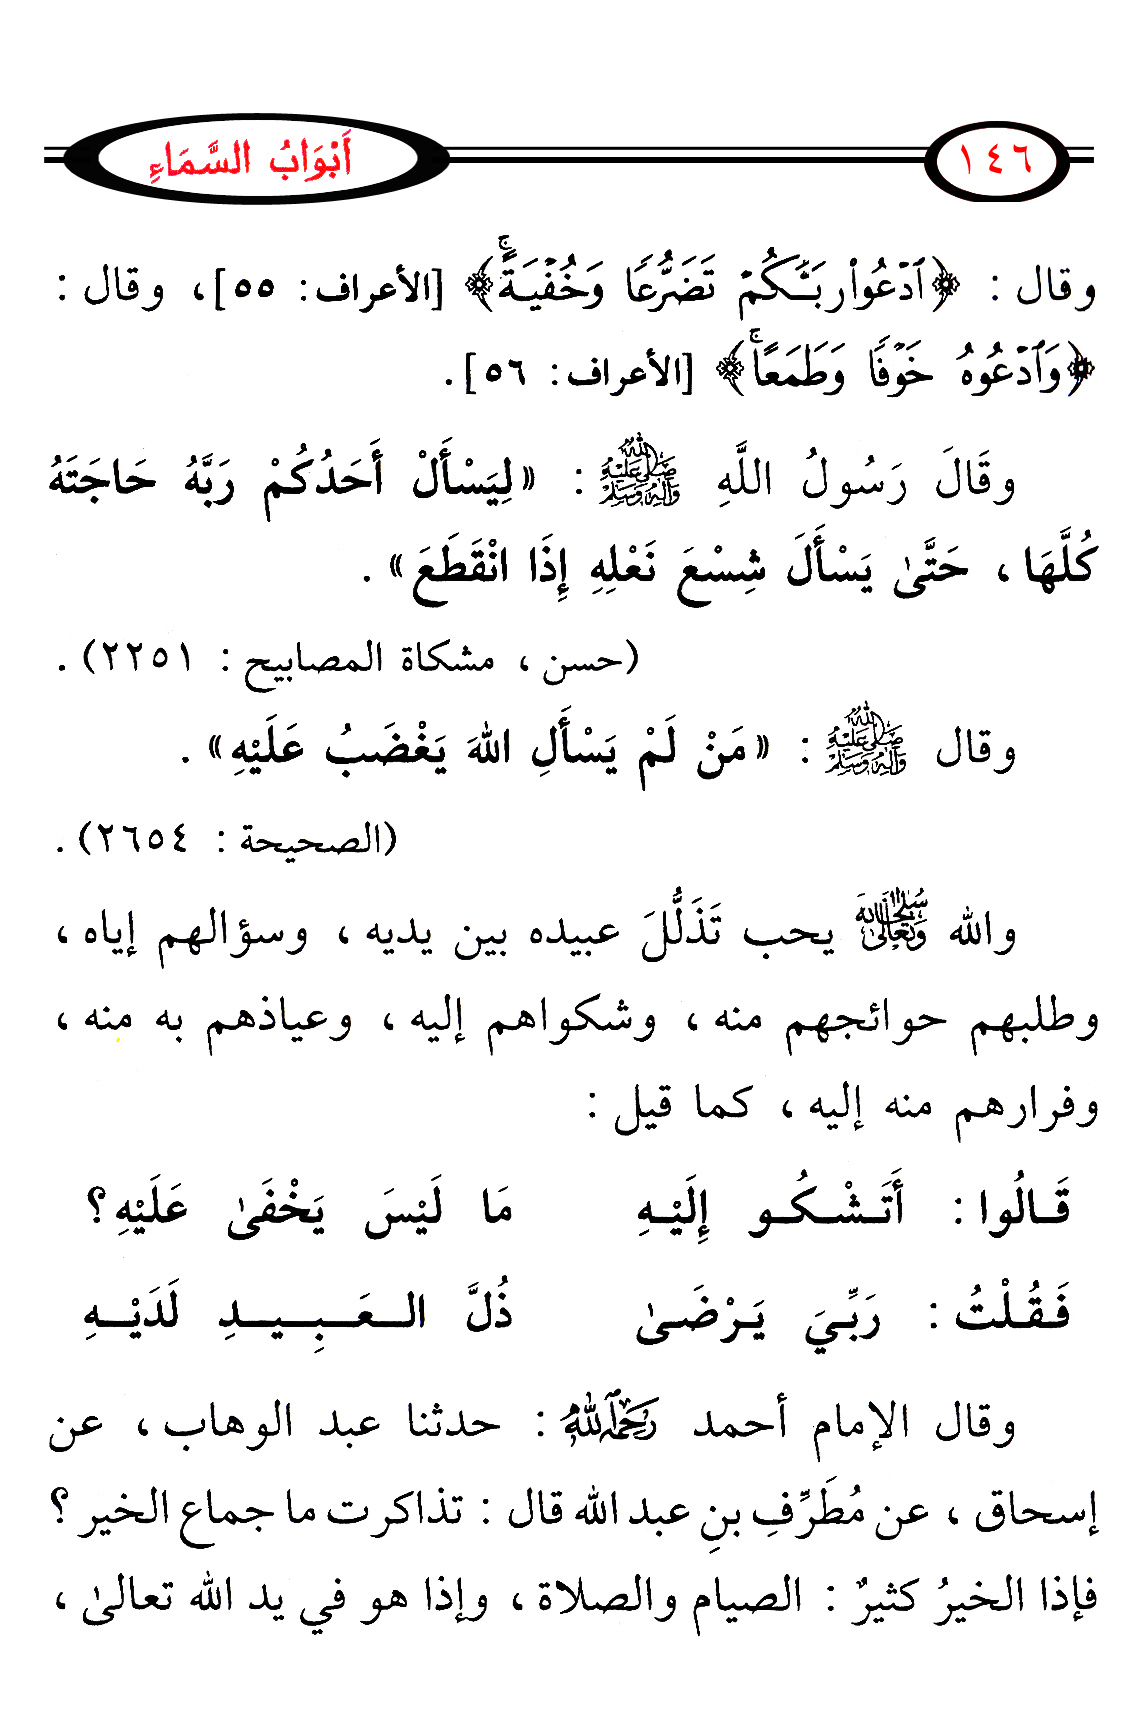 ١٤٦
أَبْوَابُ السَّمَاءِ
وقال : ﴿ٱدْعُوا۟ رَبَّكُمْ تَضَرُّعًا وَخُفْيَةً ۚ﴾ [الأعراف: ٥٥]، وقال :
﴿وَٱدْعُوهُ خَوْفًا وَطَمَعًا ۚ﴾ [الأعراف: ٥٦].
وقَالَ رَسُولُ اللَّهِ صلى الله عليه وآله وسلم : «لِيَسْأَلْ أَحَدُكُمْ رَبَّهُ حَاجَتَهُ
كُلَّهَا ، حَتَّىٰ يَسْأَلَ شِسْعَ نَعْلِهِ إِذَا انْقَطَعَ» .
(حسن ، مشكاة المصابيح : ٢٢٥١) .
وقال صلى الله عليه وآله وسلم : «مَنْ لَمْ يَسْأَلِ اللهَ يَغْضَبُ عَلَيْهِ» .
(الصحيحة : ٢٦٥٤) .
والله سبحانه وتعالى يحب تَذَلُّلَ عبيده بين يديه ، وسؤالهم إياه ،
وطلبهم حوائجهم منه ، وشكواهم إليه ، وعياذهم به منه ،
وفرارهم منه إليه ، كما قيل :
قَـالُوا : أَتَـشْـكُـو إِلَيْـهِ مَا لَيْسَ يَخْفَىٰ عَلَيْهِ؟
فَـقُـلْتُ : رَبِّـيَ يَـرْضَـىٰ ذُلَّ الـعَـبِـيـدِ لَدَيْـهِ
وقال الإمام أحمد رحمه الله : حدثنا عبد الوهاب ، عن
إسحاق ، عن مُطَرِّفِ بنِ عبد الله قال : تذاكرت ما جماع الخير ؟
فإذا الخيرُ كثيرٌ : الصيام والصلاة ، وإذا هو في يد الله تعالىٰ ،